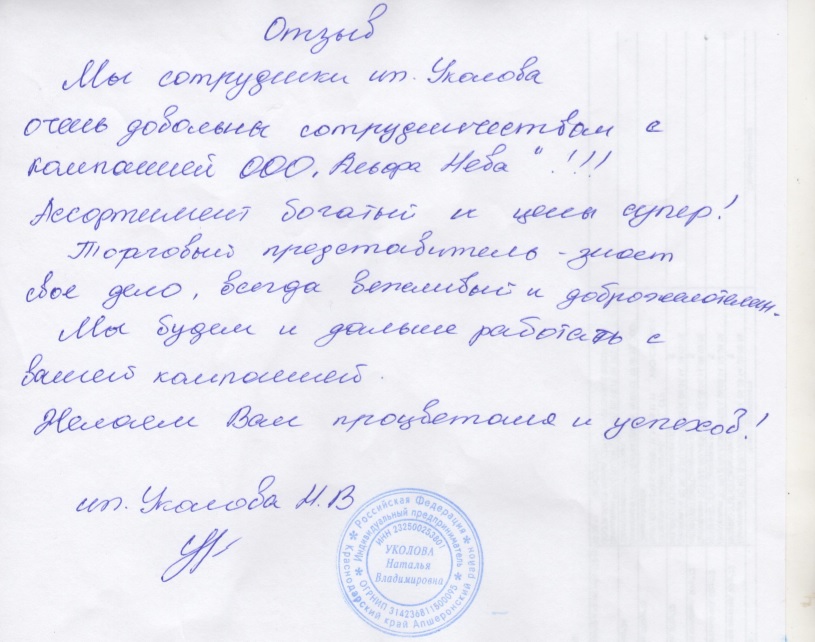 Отзыв
Мы сотрудники ип. Уколова
очень довольны сотрудничеством с
компанией ООО "Альфа Нева" !!!
Ассортимент богатый и цены супер!
Торговый представитель - знает
свое дело, всегда вежливый и доброжелателен.
Мы будем и дальше работать с
вашей компанией.
Желаем Вам процветания и успехов!
ип. Уколова Н.В
Российская Федерация
Краснодарский край Апшеронский район
Индивидуальный предприниматель
ИНН 232500253801
УКОЛОВА
Наталья
Владимировна
ОГРНИП 314236811800095